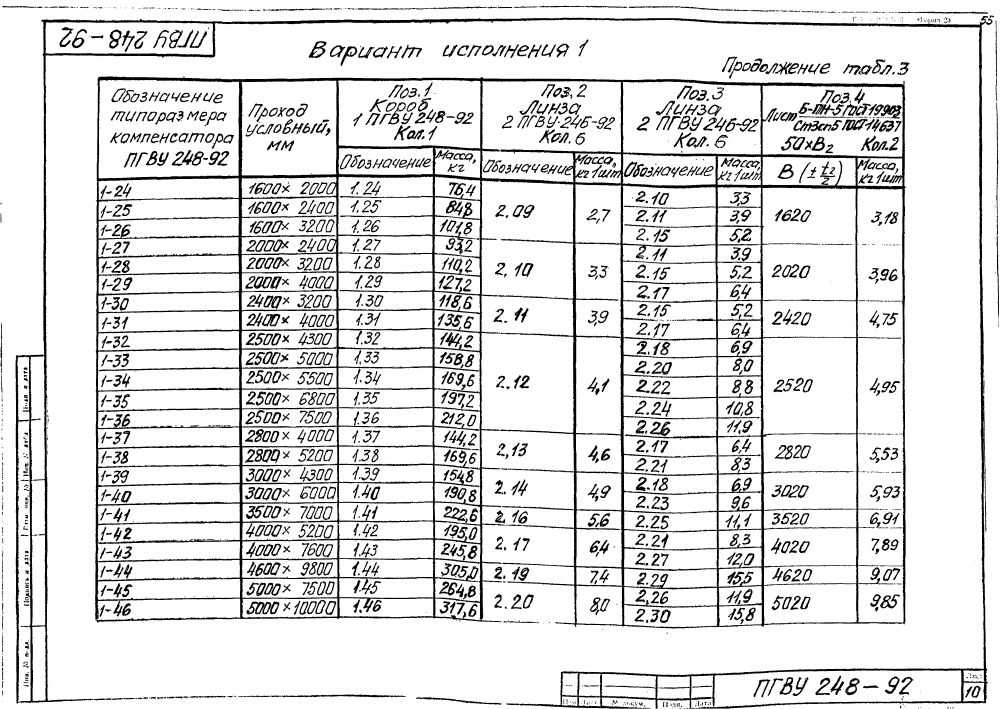 55
ПГВУ 248-92
Вариант исполнения 1
Продолжение табл.3
Обозначение типоразмера компенсатора ПГВУ 248-92
Проход условный, мм
Поз.1 Короб 1 ПГВУ 248-92 Кол.1
Поз.2 Линза 2 ПГВУ 246-92 Кол.6
Поз.3 Линза 2 ПГВУ 246-92 Кол.6
Поз.4 Лист Б-ПН-5 ГОСТ 19903 Ст3сп5 ГОСТ 14637 50×B₂ Кол.2
Обозначение Масса, кг Обозначение Масса, кг 1шт Обозначение Масса, кг 1шт B (± t₂/2) Масса, кг 1шт
1-24 1600×2000 1.24 76,4 2.09 2,7 2.10 3,3 1620 3,18
1-25 1600×2400 1.25 84,8 2.11 3,9
1-26 1600×3200 1.26 101,8 2.15 5,2
1-27 2000×2400 1.27 93,2 2.10 3,3 2.11 3,9 2020 3,96
1-28 2000×3200 1.28 110,2 2.15 5,2
1-29 2000×4000 1.29 127,2 2.17 6,4
1-30 2400×3200 1.30 118,6 2.11 3,9 2.15 5,2 2420 4,75
1-31 2400×4000 1.31 135,6 2.17 6,4
1-32 2500×4300 1.32 144,2 2.12 4,1 2.18 6,9 2520 4,95
1-33 2500×5000 1.33 158,8 2.20 8,0
1-34 2500×5500 1.34 169,6 2.22 8,8
1-35 2500×6800 1.35 197,2 2.24 10,8
1-36 2500×7500 1.36 212,0 2.26 11,9
1-37 2800×4000 1.37 144,2 2,13 4,6 2.17 6,4 2820 5,53
1-38 2800×5200 1.38 169,6 2.21 8,3
1-39 3000×4300 1.39 154,8 2.14 4,9 2.18 6,9 3020 5,93
1-40 3000×6000 1.40 190,8 2.23 9,6
1-41 3500×7000 1.41 222,6 2.16 5,6 2.25 11,1 3520 6,91
1-42 4000×5200 1.42 195,0 2.17 6,4 2.21 8,3 4020 7,89
1-43 4000×7600 1.43 245,8 2.27 12,0
1-44 4600×9800 1.44 305,0 2.19 7,4 2.29 15,5 4620 9,07
1-45 5000×7500 1.45 264,8 2.20 8,0 2,26 11,9 5020 9,85
1-46 5000×10000 1.46 317,6 2.30 15,8
ПГВУ 248-92
Лист
10
Изм Лист № докум. Подп. Дата